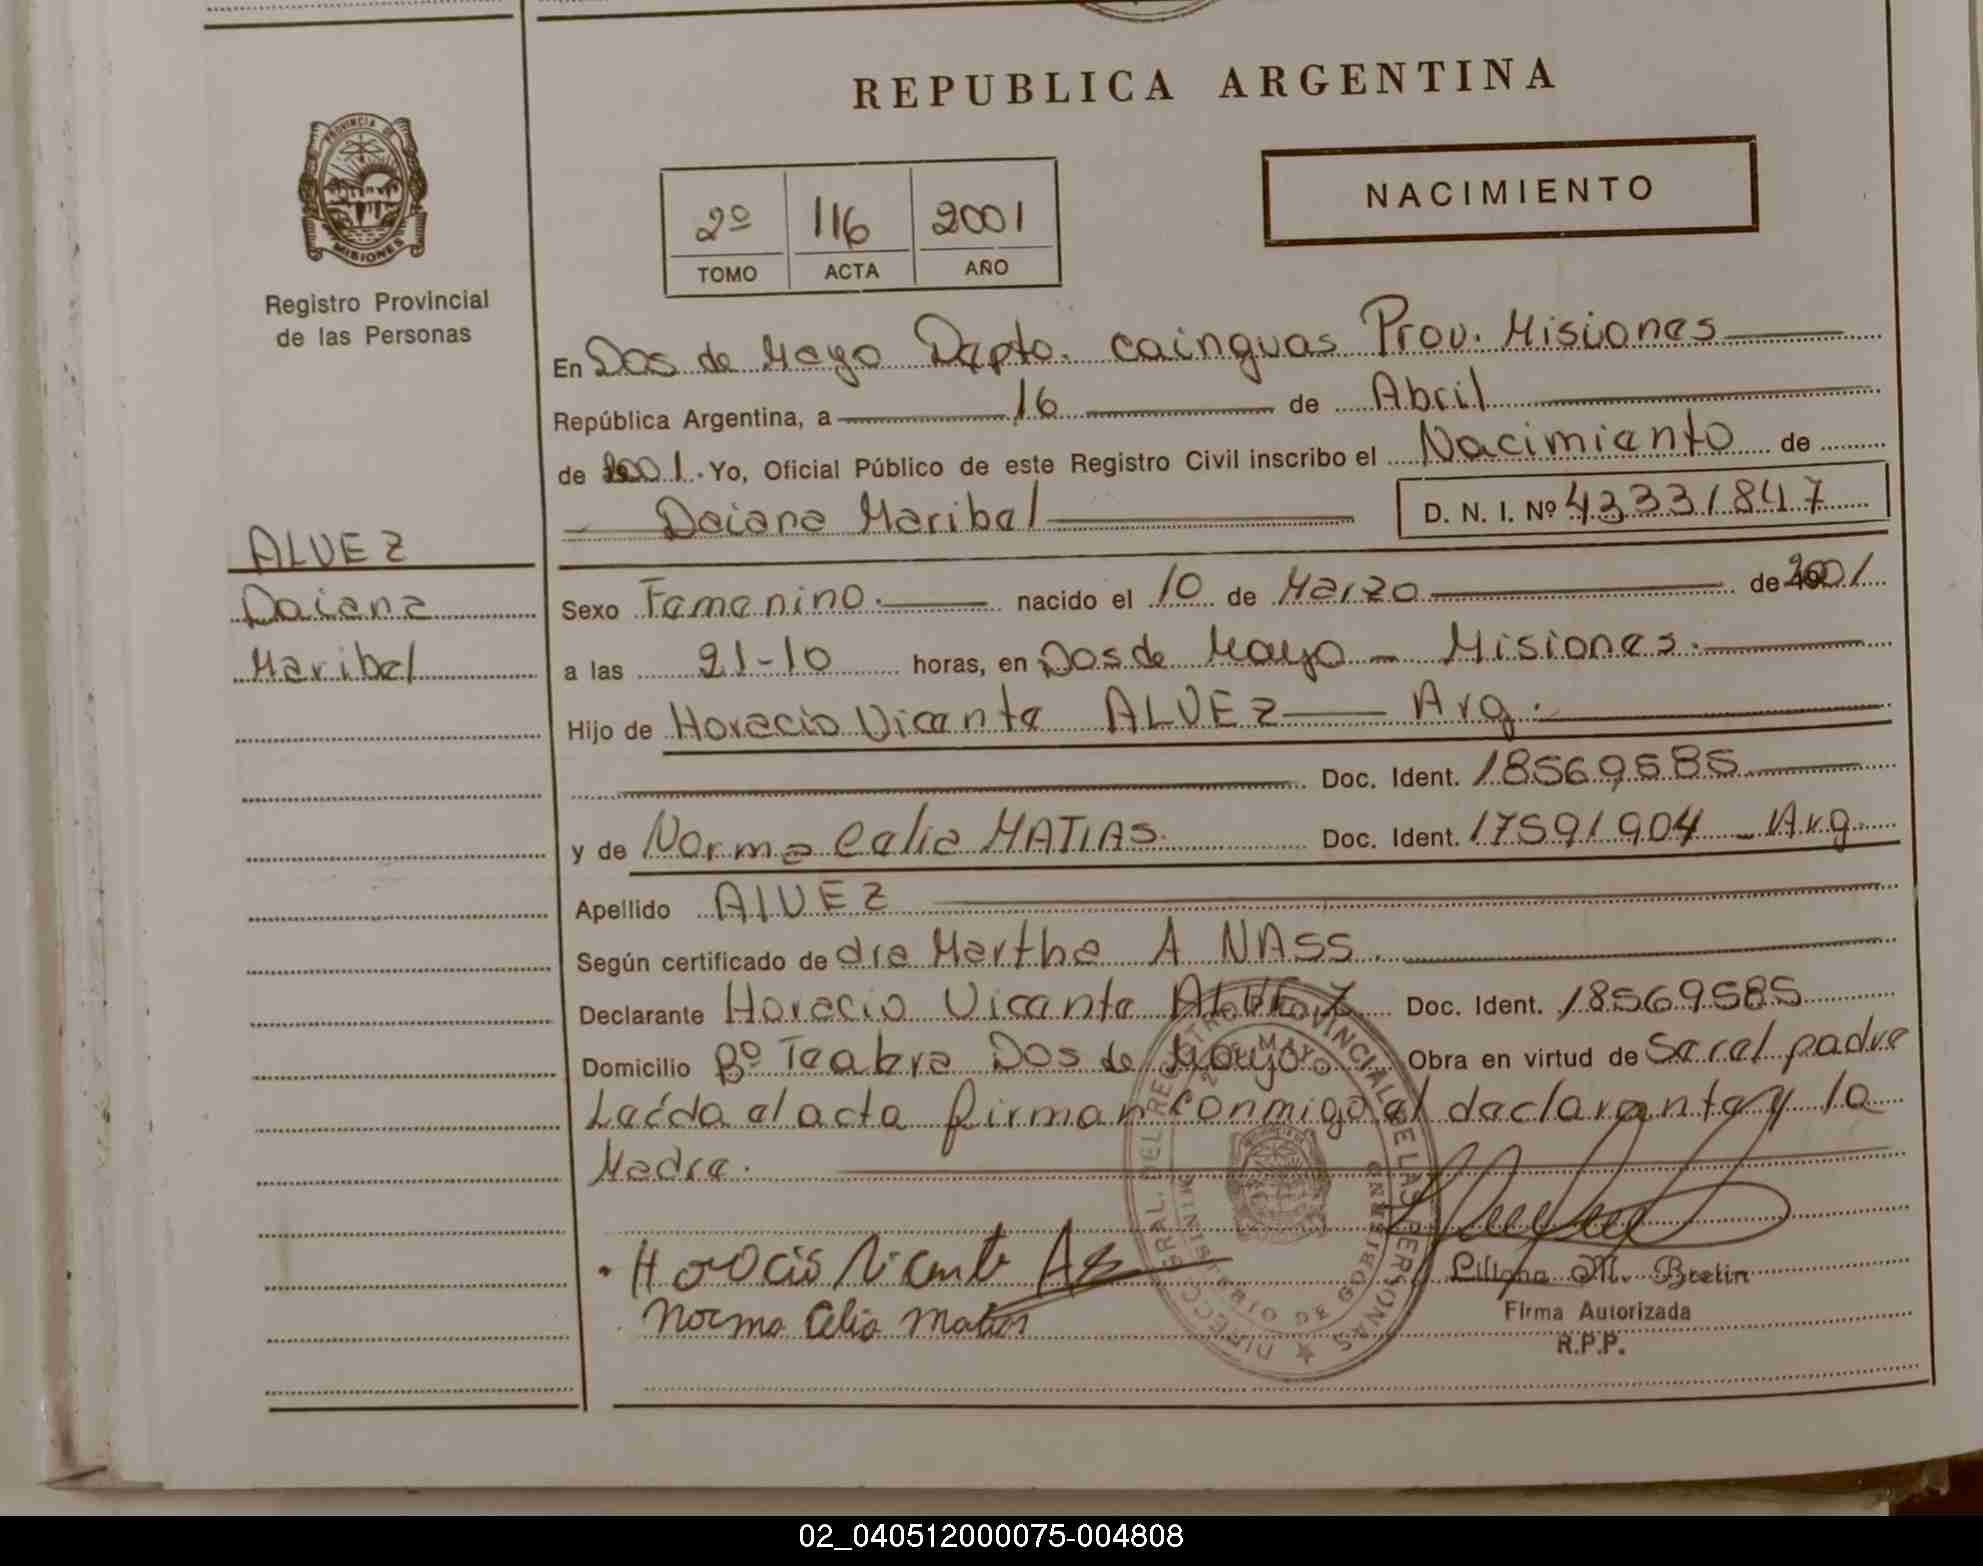 REPUBLICA ARGENTINA
PROVINCIA DE
MISIONES
Registro Provincial
de las Personas
NACIMIENTO
2º 116 2001
TOMO ACTA AÑO
En Dos de Mayo Dapto. cainguas Prov. Misiones
República Argentina, a 16 de Abril
de 2001. Yo, Oficial Público de este Registro Civil inscribo el Nacimiento de
Daiana Maribel D. N. I. Nº 43331847
ALVEZ
Daiana
Maribel
Sexo Femenino. nacido el 10 de Marzo de 2001
a las 21-10 horas, en Dos de Mayo - Misiones.
Hijo de Horacio Vicente ALVEZ Arg.
Doc. Ident. 18569585
y de Norma Celia MATIAS. Doc. Ident. 17591904 - Arg.
Apellido ALVEZ
Según certificado de dra Martha A NASS.
Declarante Horacio Vicente ALVEZ Doc. Ident. 18569585
Domicilio Bº Teabra Dos de Mayo Obra en virtud de Ser el padre
Leída el acta firman conmigo el declarante y la
Madre.
DIRECC. GRAL. DEL REGISTRO PROVINCIAL DE LAS PERSONAS
2 DE MAYO
MINISTERIO DE GOBIERNO
Horacio Vicente
Norma Celia Matias
Liliana M. Brelin
Firma Autorizada
R.P.P.
02_040512000075-004808